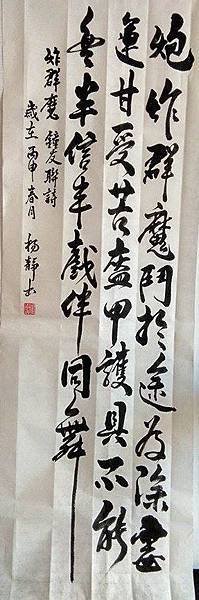 炮炸群魔鬥於途為除霉
運甘受苦盔甲護具不能
無半信半戲伴同舞
炸群魔 鐘友聯詩
歲在丙申春月 楊靜书